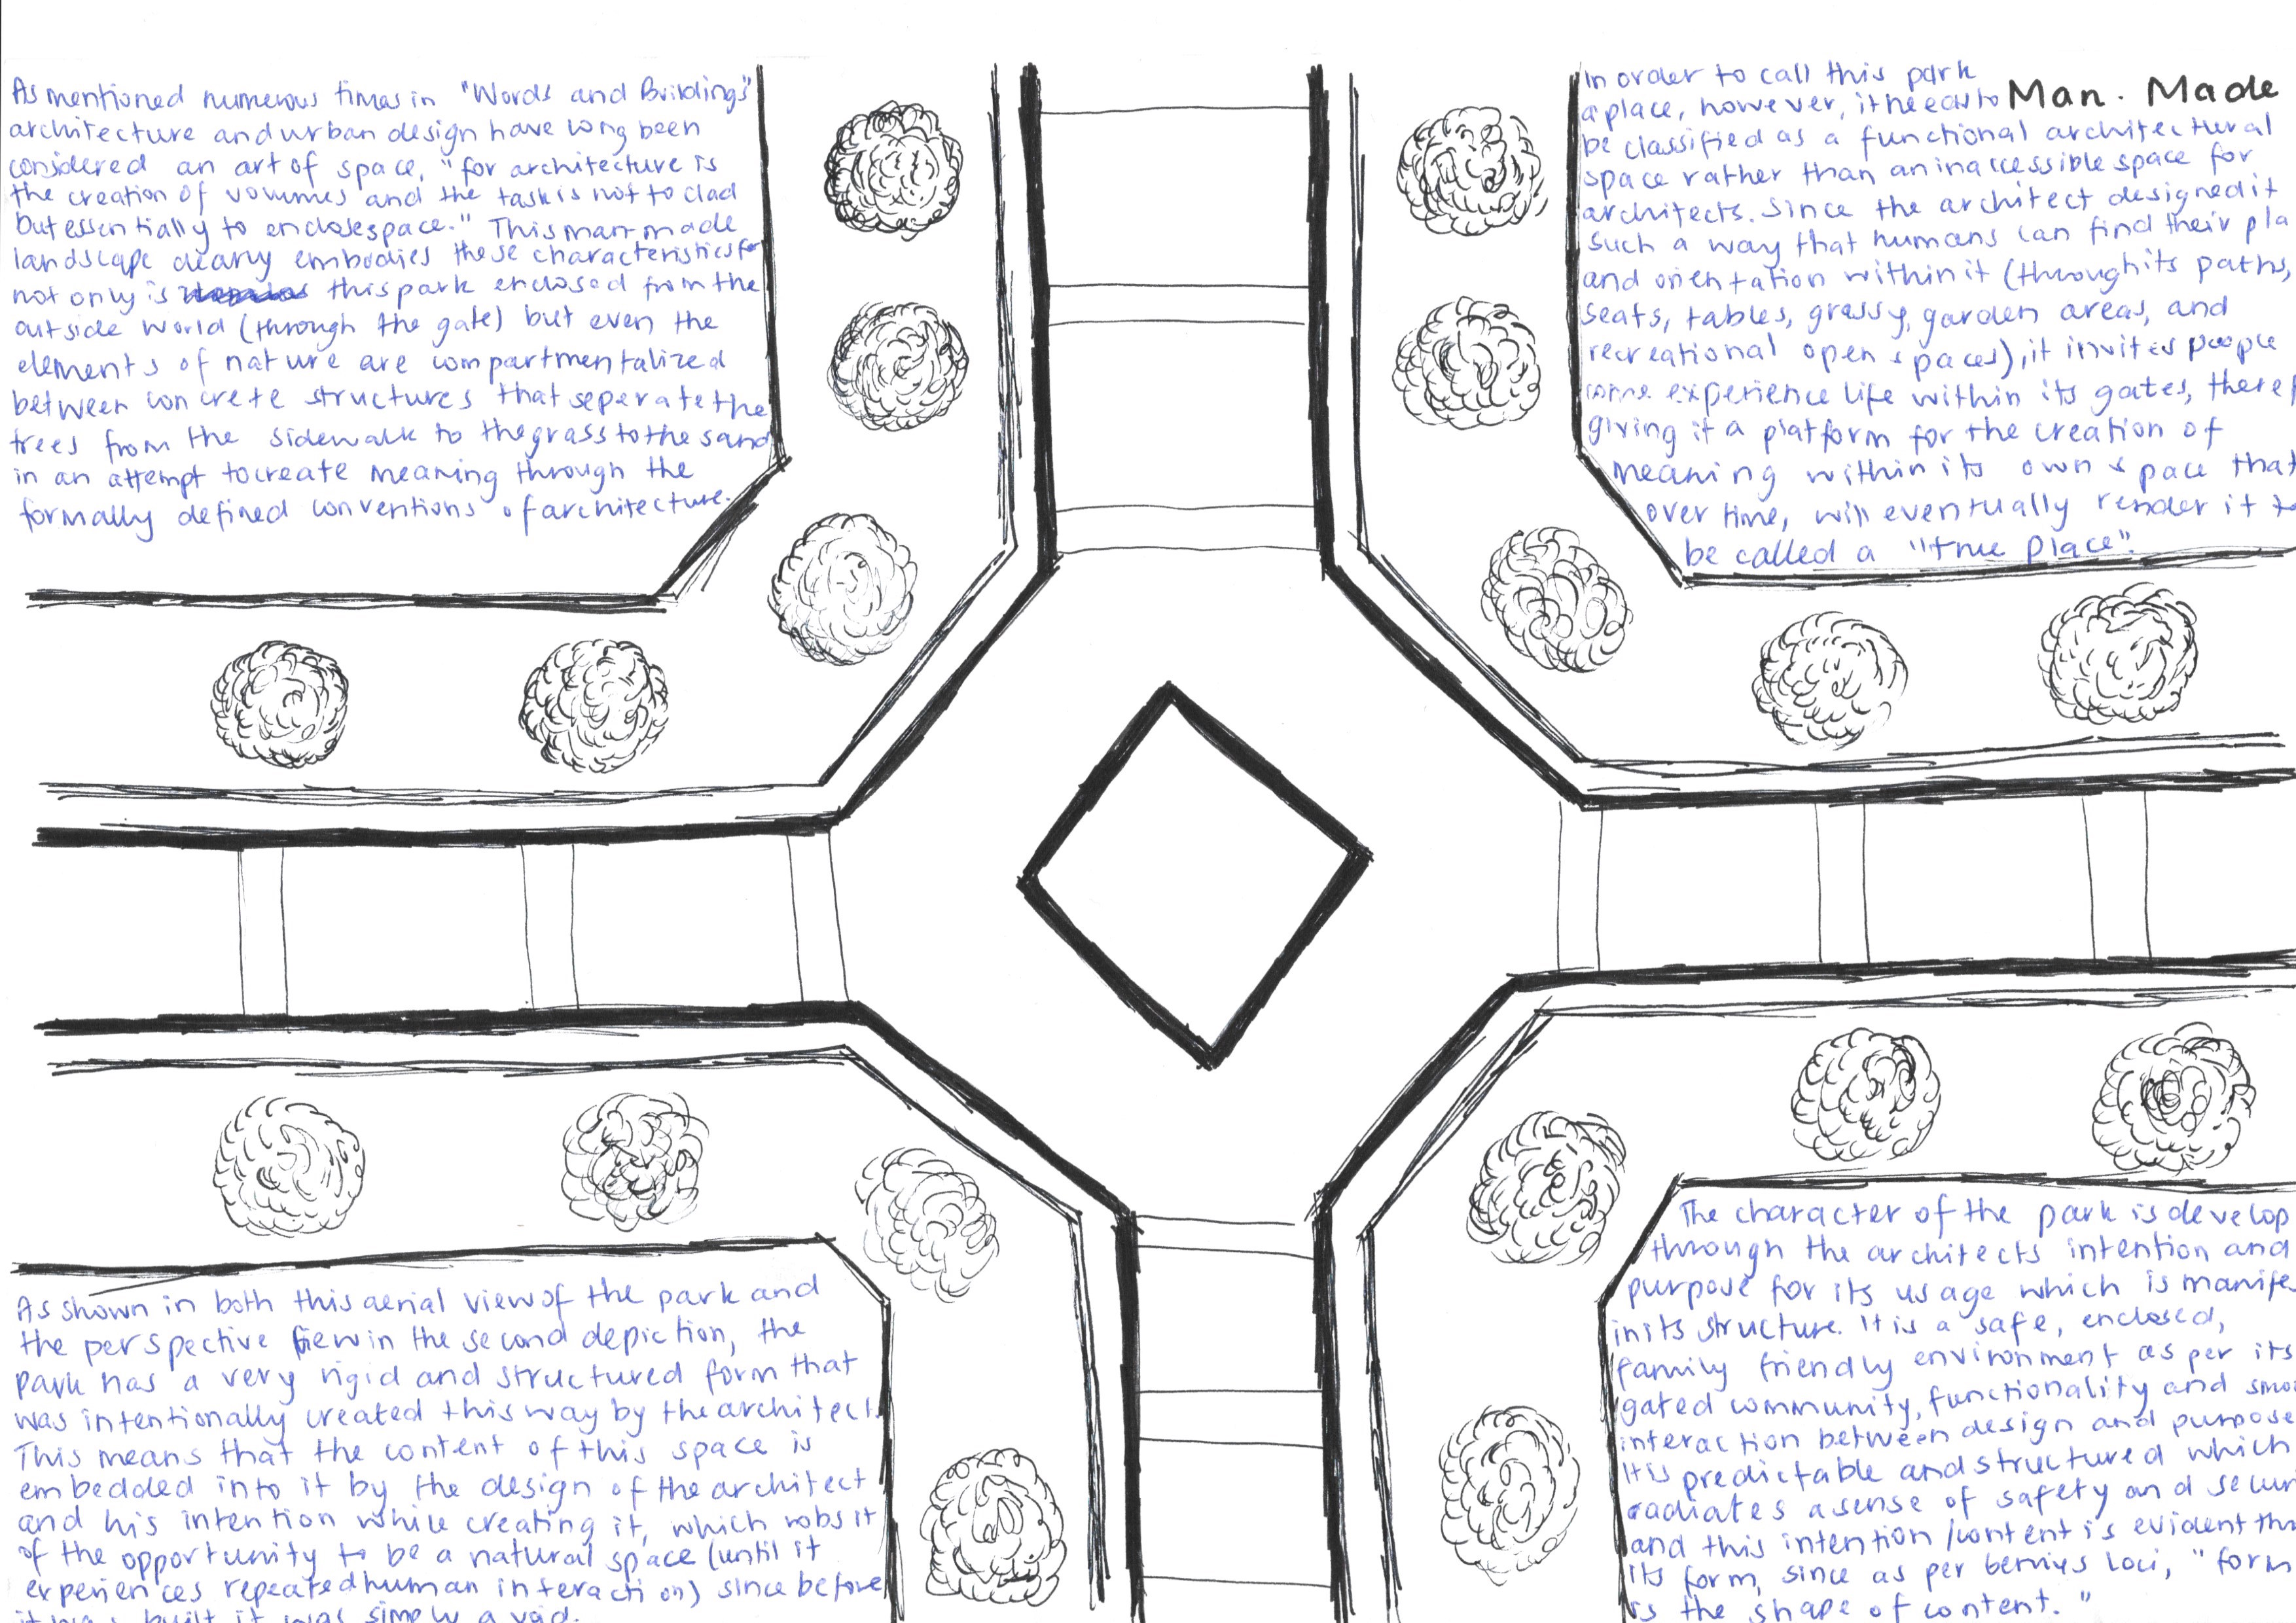 As mentioned numerous times in "Words and Buildings"
architecture and urban design have long been
considered an art of space, "for architecture is
the creation of volumes and the task is not to clad
but essentially to enclose space." This man-made
landscape clearly embodies these characteristics for
not only is this park enclosed from the
outside world (through the gate) but even the
elements of nature are compartmentalized
between concrete structures that seperate the
trees from the sidewalk to the grass to the sand
in an attempt to create meaning through the
formally defined conventions of architecture.
Man. Made
In order to call this park
a place, however, it needs to
be classified as a functional architectural
space rather than an inaccessible space for
architects. Since the architect designed it
such a way that humans can find their pla
and orientation within it (through its paths,
seats, tables, grassy, garden areas, and
recreational open spaces), it invites people
experience life within its gates, there
giving it a platform for the creation of
meaning within its own space that
over time, will eventually render it to
be called a "true place".
As shown in both this aerial view of the park and
the perspective view in the second depiction, the
park has a very rigid and structured form that
was intentionally created this way by the architect.
This means that the content of this space is
embedded into it by the design of the architect
and his intention while creating it, which robs it
of the opportunity to be a natural space (until it
experiences repeated human interaction) since before
it was built it was simply a void.
The character of the park is develop
through the architects intention and
purpose for its usage which is manife
in its structure. It is a safe, enclosed,
family friendly environment as per its
gated community, functionality and smo
interaction between design and purpose
It is predictable and structured which
radiates a sense of safety and secur
and this intention/content is evident thr
its form, since as per Loci, "form
is the shape of content."